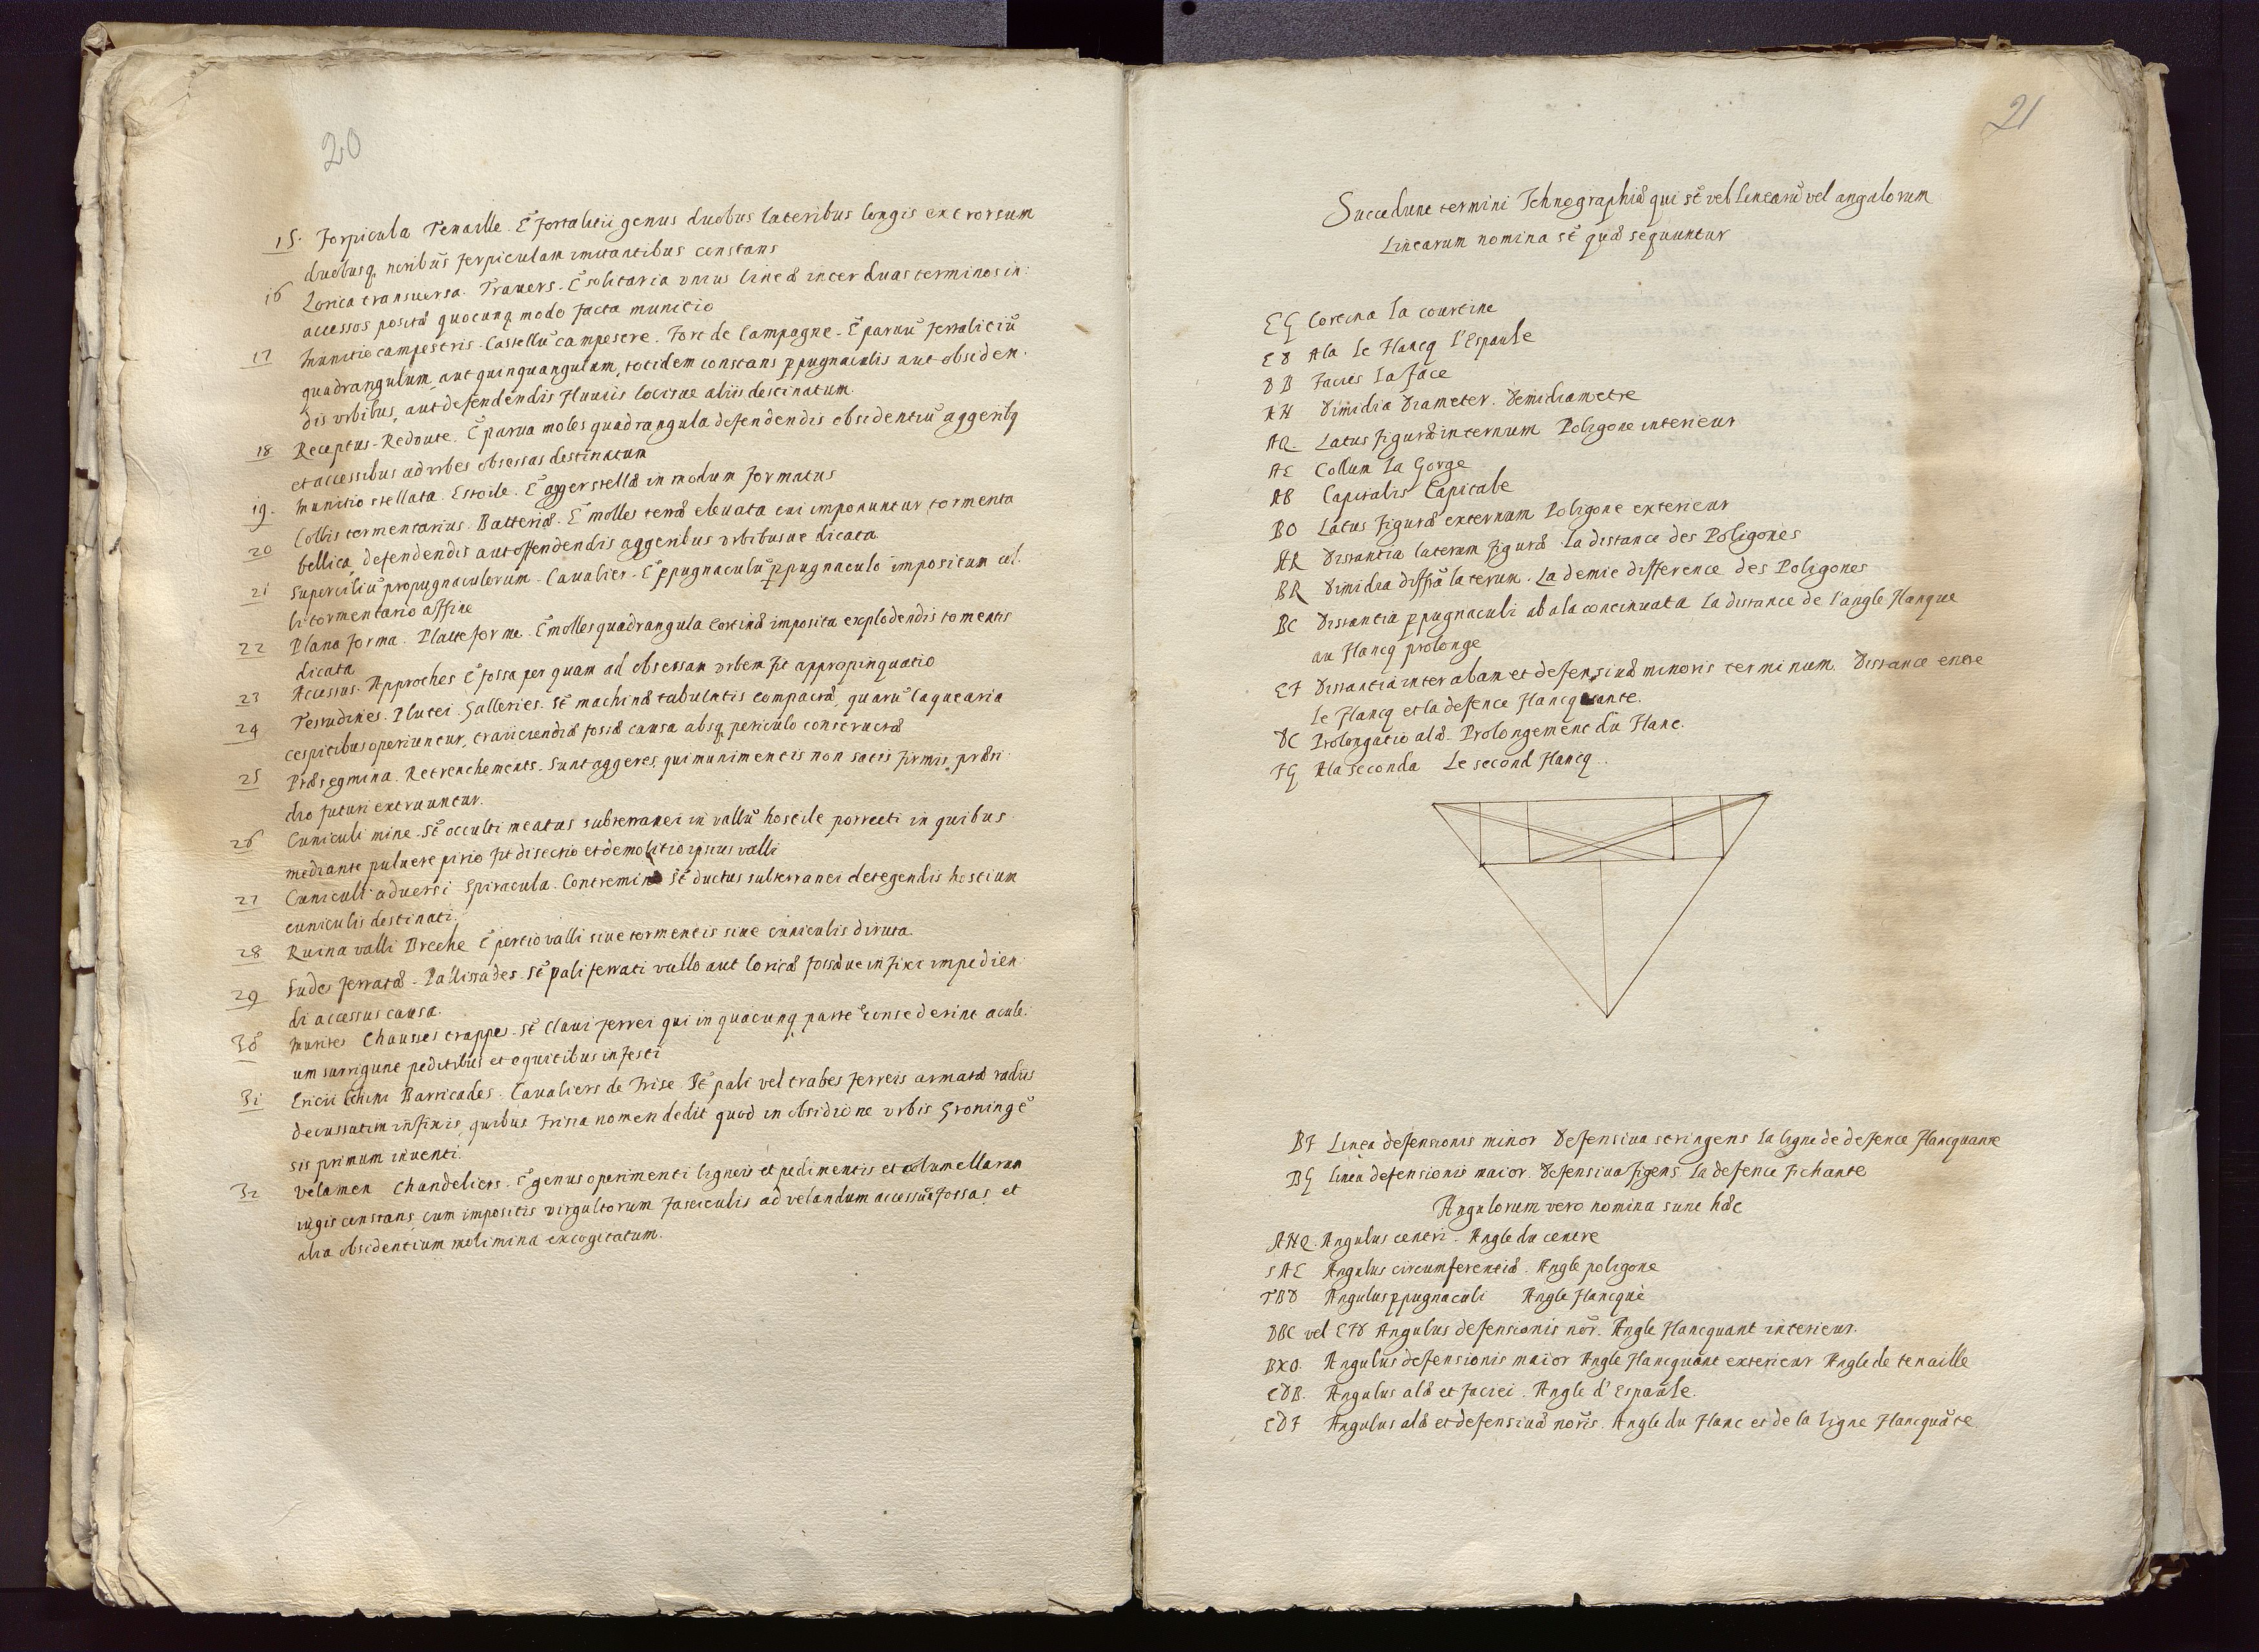 20
15. Forpicula Tenaille. E͂ fortalitii genus duobus lateribus longis extrorsum
duobusq. noribus forpiculam imitantibus constans
16 Lorica transuersa. Trauers. E͂ solitaria vnius lineæ inter duas terminos in:
accessos positæ quocunq modo facta munitio
17 Munitio campestris. Castellu͂ campestre. Fort de Campagne. E͂ paruu͂ fortalitiu͂
quadrangulum, aut quinquangulum, totidem constans ppugnaculis aut obsiden:
dis vrbibus, aut defendendis fluuiis locisue aliis destinatum.
18 Receptus. Redoute. E͂ parua moles quadrangula defendendis obsidentiu͂ aggeribq
et accessibus ad vrbes obsessas destinatum
19. Munitio stellata. Estoile. E͂ agger stellæ in modum formatus
20 Collis tormentarius. Batteriæ. E͂ molles terræ eleuata cui imponuntur tormenta
bellica, defendendis aut offendendis aggeribus vrbibusue dicata.
21 Superciliu͂ propugnaculorum. Caualier. E͂ ppugnaculu͂ ppugnaculo impositum col:
li tormentario affine
22 Plana forma. Platteforme. E͂ molles quadrangula cortinæ imposita explodendis tomentis
dicata
23 Accessus. Approches E͂ fossa per quam ad obsessam vrbem fit appropinquatio
24 Testudines. Plutei. Galleries. St͂ machinæ tabulatis compactæ, quaru͂ laquearia
cespitibus operiuntur, traiiciendiæ fossæ causa absq. periculo constructæ
25 Præsegmina. Retrenchements. Sunt aggeres, qui munimentis non satis firmis, præsi:
dio futuri extruuntur.
26 Cuniculi mine. St͂ occulti meatus subterranei in vallu͂ hostile porrecti in quibus
mediante puluere pirio fit disectio et demolitio ipsius valli
27 Cuniculi aduersi Spiracula. Contreminæ St͂ ductus subterranei detegendis hostium
cuniculis destinati.
28 Ruina valli Breche E͂ portio valli siue tormentis siue cuniculis diruta.
29 Sudes ferratæ. Pallissades. St͂ pali ferrati vallo aut loricæ fossæue infixi impedien:
di accessus causa.
30 Murites Chausses trappes. St͂ Claui ferrei qui in quacunq parte consederint acule:
um surrigunt peditibus et equitibus infesti
31 Ericii Barricades. Caualiers de Frise. St͂ pali vel trabes ferreis armatæ radiis
decussatim infixis, quibus Frisia nomen dedit quod in obsidione vrbis Groninge͂
sis primum inuenti.
32 Velamen Chandeliers. E͂ genus operimenti ligneis et pedimentis et columellarum
iugis constans, cum impositis virgultorum fasciculis ad velandum accessu͂ fossas, et
alia obsidentium molimina excogitatum.
21
Succedunt termini Ichnographiæ qui st͂ vel linearu͂ vel angulorum
Linearum nomina st͂ quæ sequuntur
EG Cortina la courtine
ED Ala Le Flancq l'Espaule
DB Facies La face
AH Dimidia Diameter. Demidiametre
AQ. Latus figuræ internum Poligone interieur
AE Collum La Gorge
AB Capitalis Capitale
BO Latus figuræ externum Poligone exterieur
AR Distantia laterum figuræ. la distance des Poligones
BR Dimidia diffr͂a laterum. La demie difference des Poligones
BC Distantia ppugnaculi ab ala continuata la distance de l'angle flanque
au flancq prolonge
EF Distantia inter alam et defensiuæ minoris terminum. Distance entre
le flancq et la defence flancquante.
DC Prolongatio alæ. Prolongement du Flanc.
FG Ala seconda Le second flancq.
BF Linea defensionis minor Defensiua stringens la ligne de defence flancquante
BG linea defensionis maior. Defensiua figens. la defence fichante
Angulorum vero nomina sunt hæc
AHQ. Angulus centri. Angle du centre
SAE Angulus circumferentiæ. Angle poligone
TBD Angulus ppugnaculi Angle flancque
DBC vel EFD Angulus defensionis no͂r. Angle flancquant interieur.
BXO. Angulus defensionis maior Angle flancquant exterieur Angle de tenaille
EDB. Angulus alæ et faciei. Angle d'Espaule.
EDF Angulus alæ et defensiuæ no͂ris. Angle du flanc et de la ligne flancqua͂te